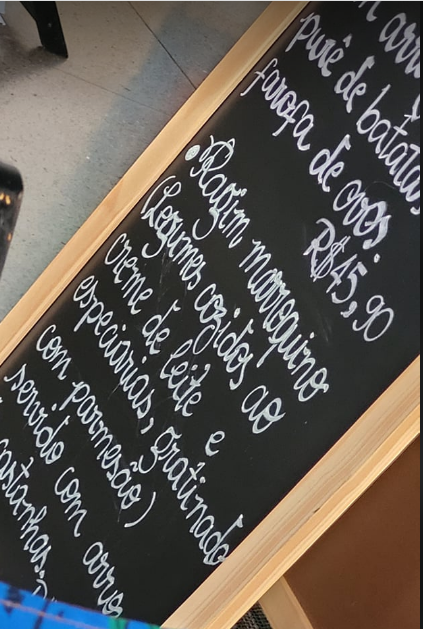 purê de batatas
farofa de ovos
R$45,90
• Ragim marroquino
(Legumes cozidos ao
creme de leite e
especiarias, gratinado
com parmesão)
servido com arroz
castanhas